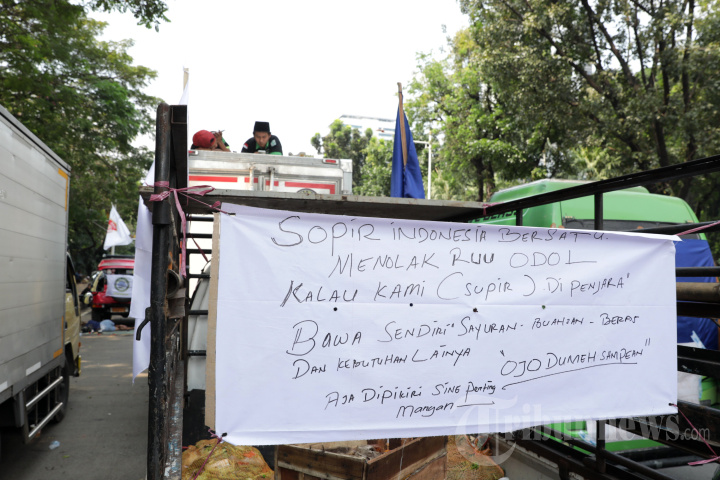 SOPIR INDONESIA BERSATU.
MENOLAK RUU ODOL
KALAU KAMI (SUPIR) DI PENJARA"
BAWA SENDIRI" SAYURAN - BUAHAN - BERAS
DAN KEBUTUHAN LAINYA "OJO DUMEH SAMPEAN"
AJA DIPIKIRI SING Penting
Mangan
Tribunnews.com